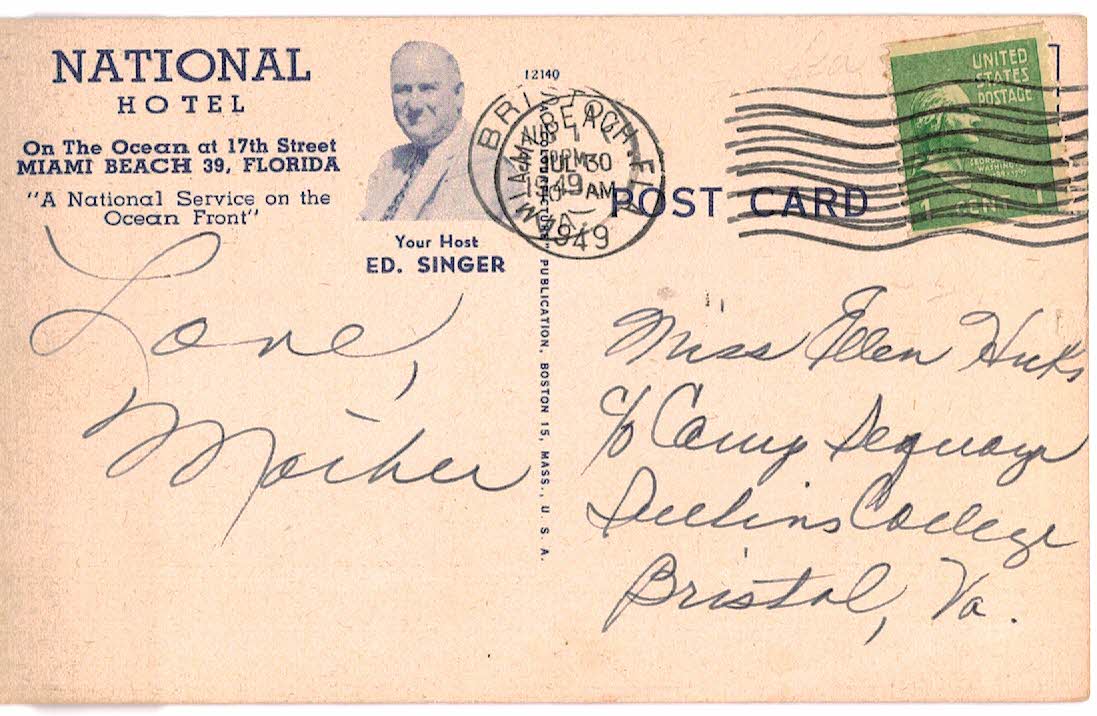 NATIONAL
HOTEL
On The Ocean at 17th Street
MIAMI BEACH 39, FLORIDA
"A National Service on the
Ocean Front"
Your Host
ED. SINGER
Love,
Mother
12140
PUBLICATION, BOSTON 15, MASS., U. S. A.
BRISTOL
VA.
MIAMI BEACH, FLA
JUL 30
AM
1949
POST CARD
UNITED
STATES
POSTAGE
1 CENT 1
Miss Ellen Hicks
c/o Camp Sequoya
College
Bristol, Va.